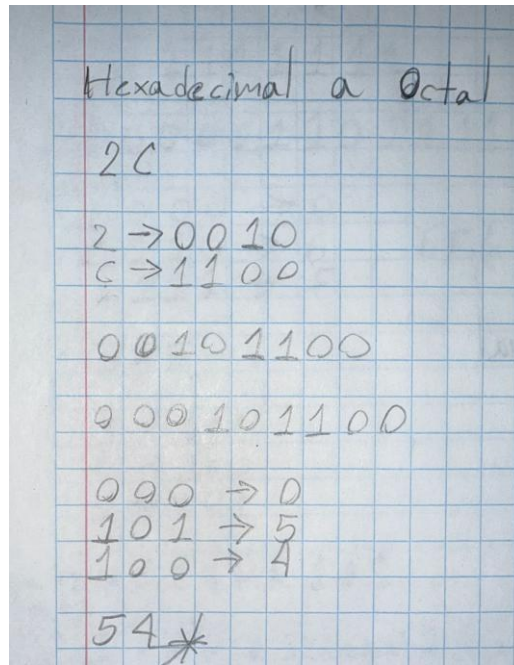 Hexadecimal a Octal
2C
2 → 0010
C → 1100
00101100
000101100
000 → 0
101 → 5
100 → 4
54